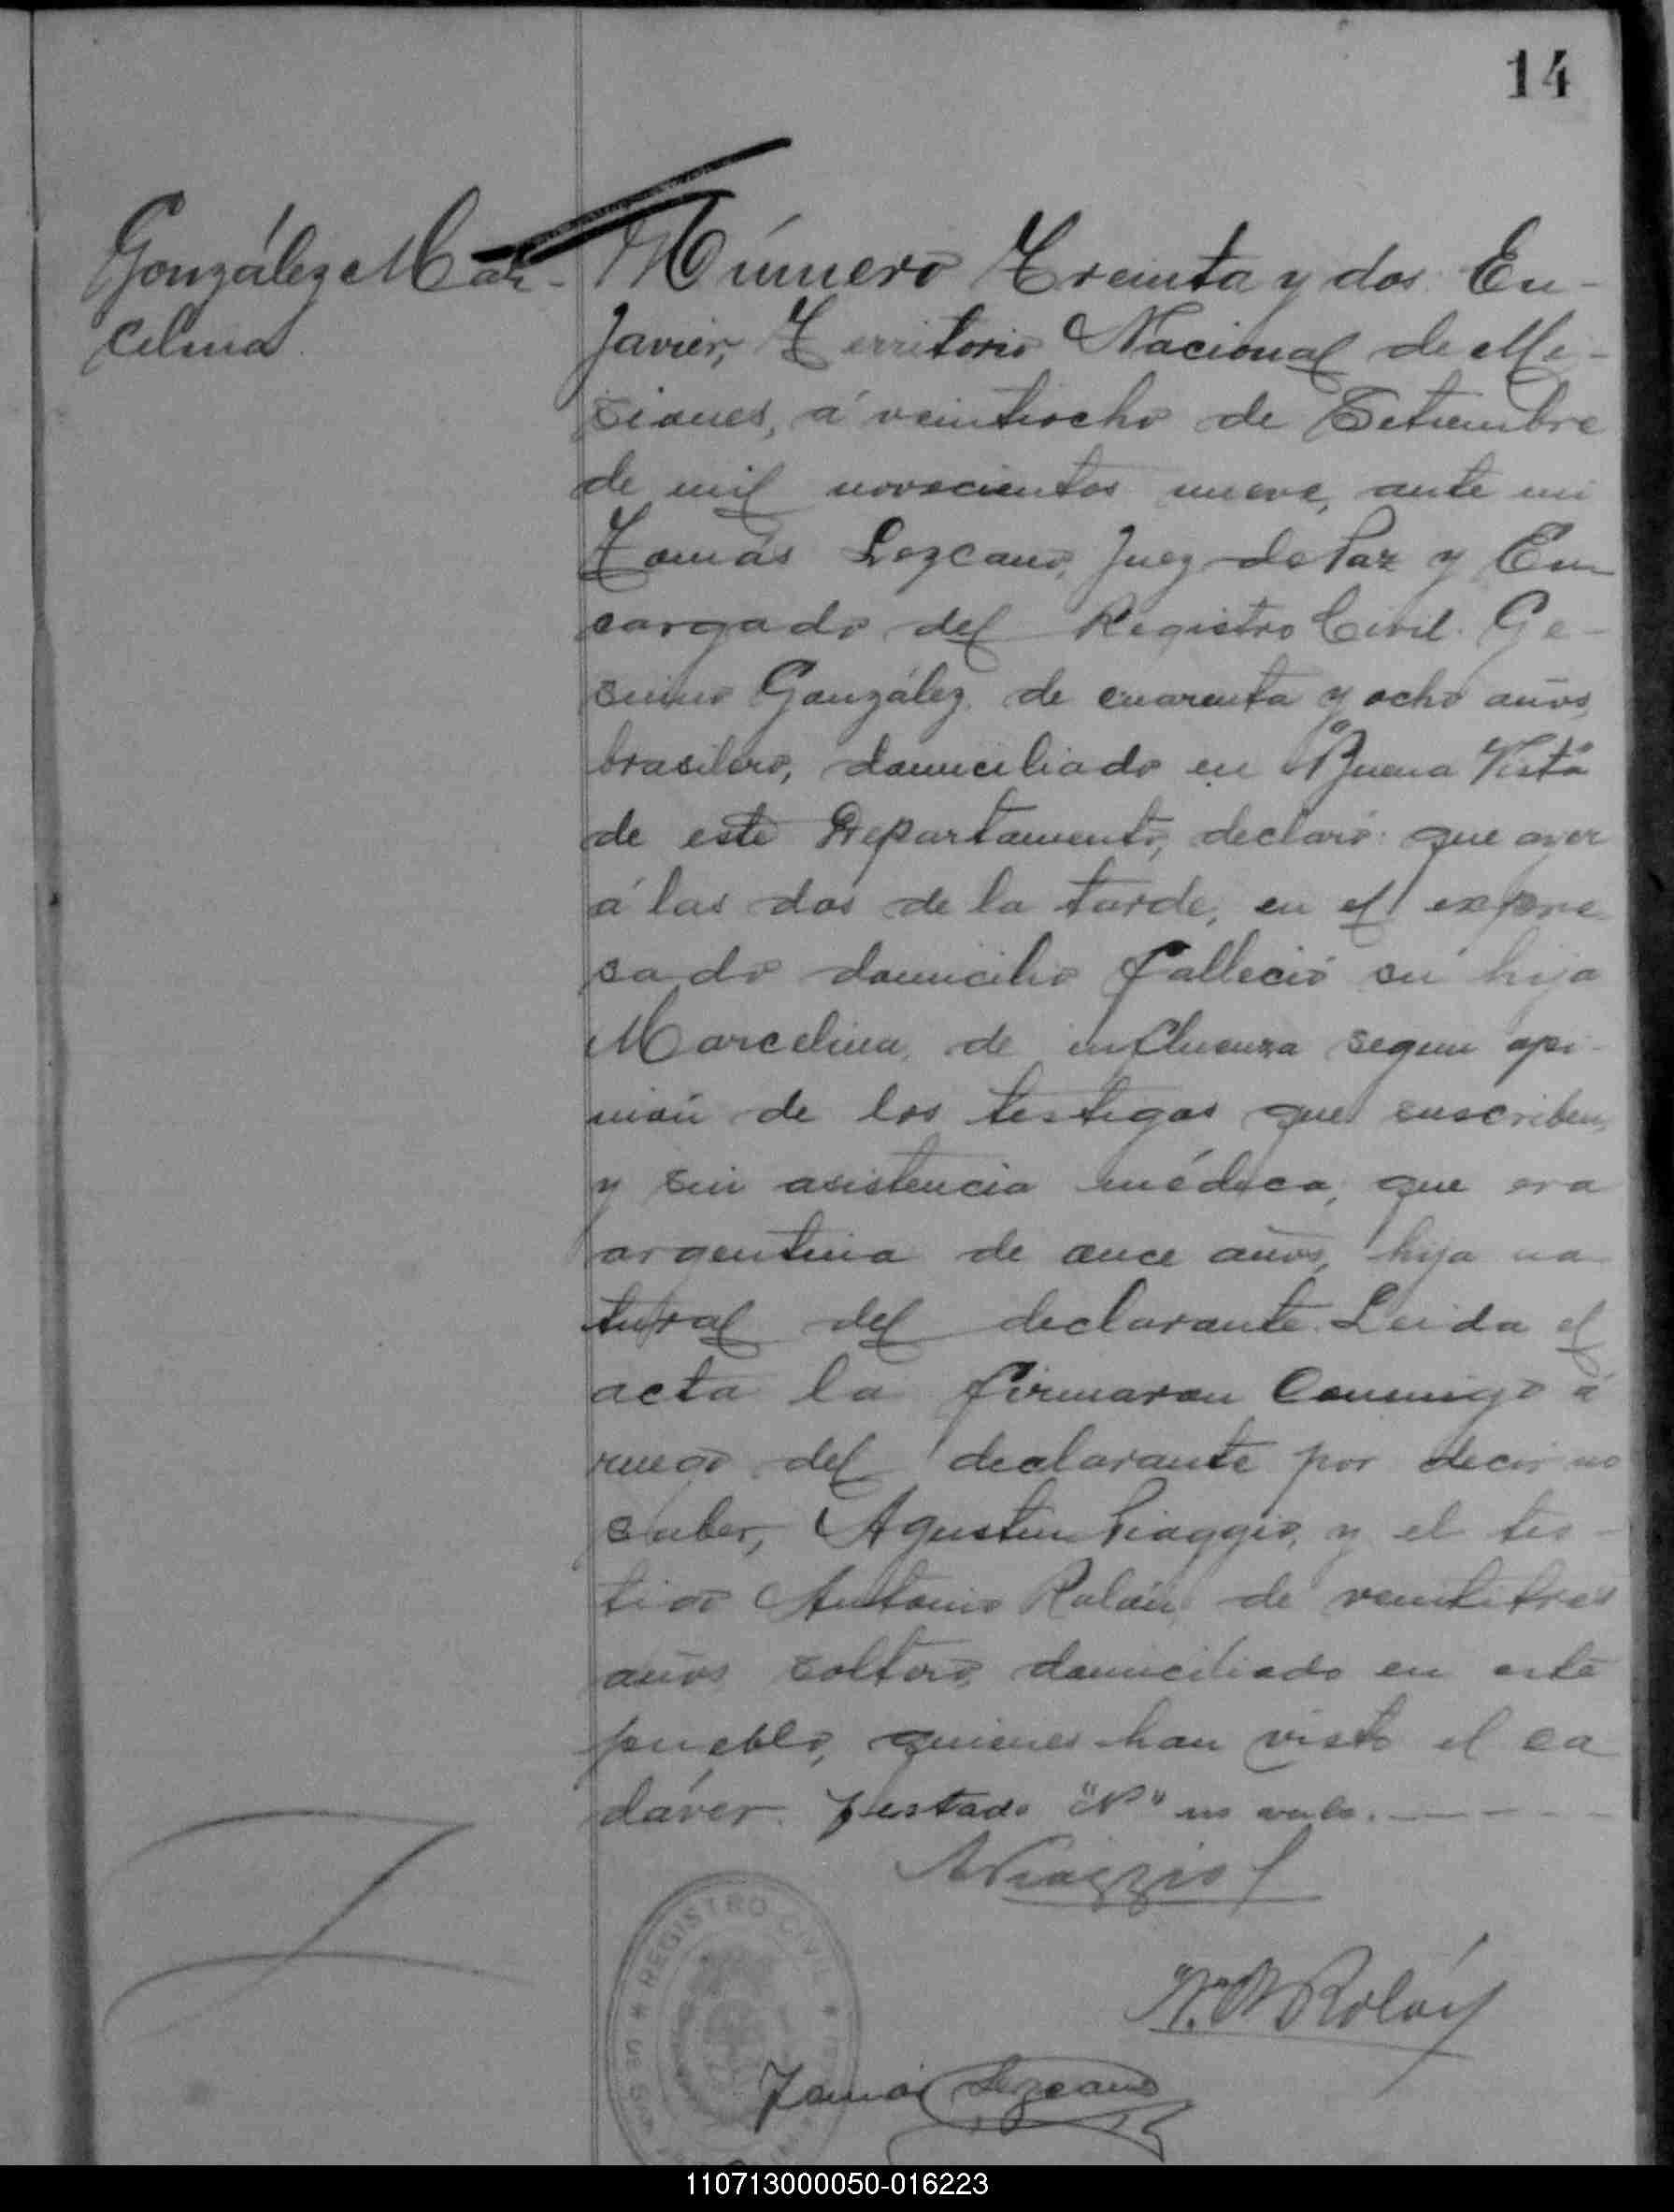 14
González Mar-
celina
Número Treinta y dos. En
Javier, Territorio Nacional de Mi-
siones, á veintiocho de Setiembre
de mil novecientos nueve, ante mi
Tomás Lezcano, Juez de Paz y En
cargado del Registro Civil. Ge-
suino González de cuarenta y ocho años,
brasilero, domiciliado en Buena Vista
de este Departamento, declaró: que ayer
á las dos de la tarde, en el expre
sado domicilio falleció su hija
Marcelina, de influenza segun opi-
nión de los testigos que suscriben,
y sin asistencia médica, que era
argentina de once años, hija na
tural del declarante. Leida el
acta la firmaron conmigo á
ruego del declarante por decir no
saber, Agustin Piaggio, y el tes-
tigo Antonio Rolón, de veintitres
años soltero, domiciliado en este
pueblo, quienes han visto el ca
dáver. Testado "N" no vale.
APiaggio
Rolón
REGISTRO CIVIL
Tomás Lezcano
110713000050-016223